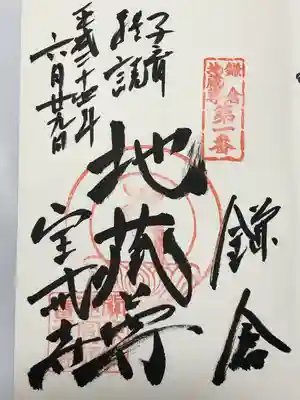 鎌倉
地蔵尊
第一番
鎌倉
子育
経読
地蔵尊
宝戒寺
平成二十四年
六月廿九日